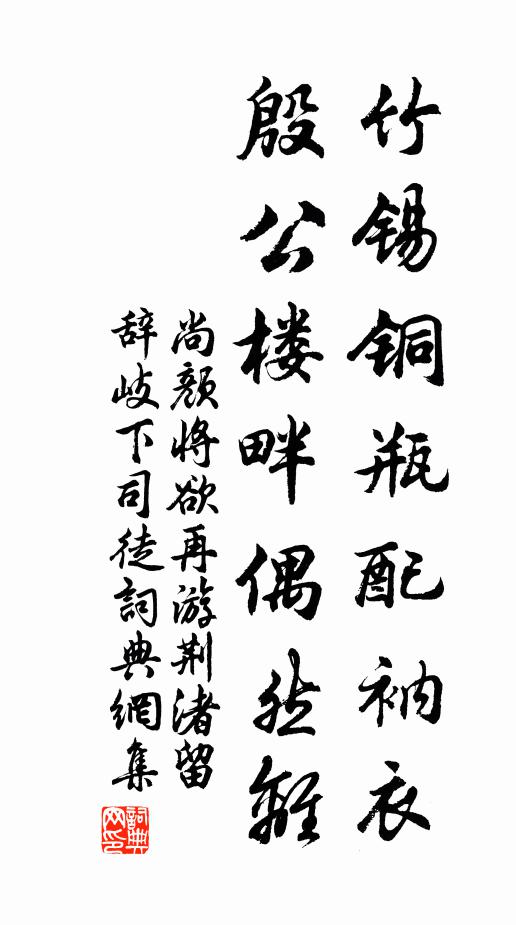 竹锡铜瓶配衲衣
殷公楼畔偶然离
尚颜将欲再游荆渚留
辞岐下司徒詞典網集
詞典网印